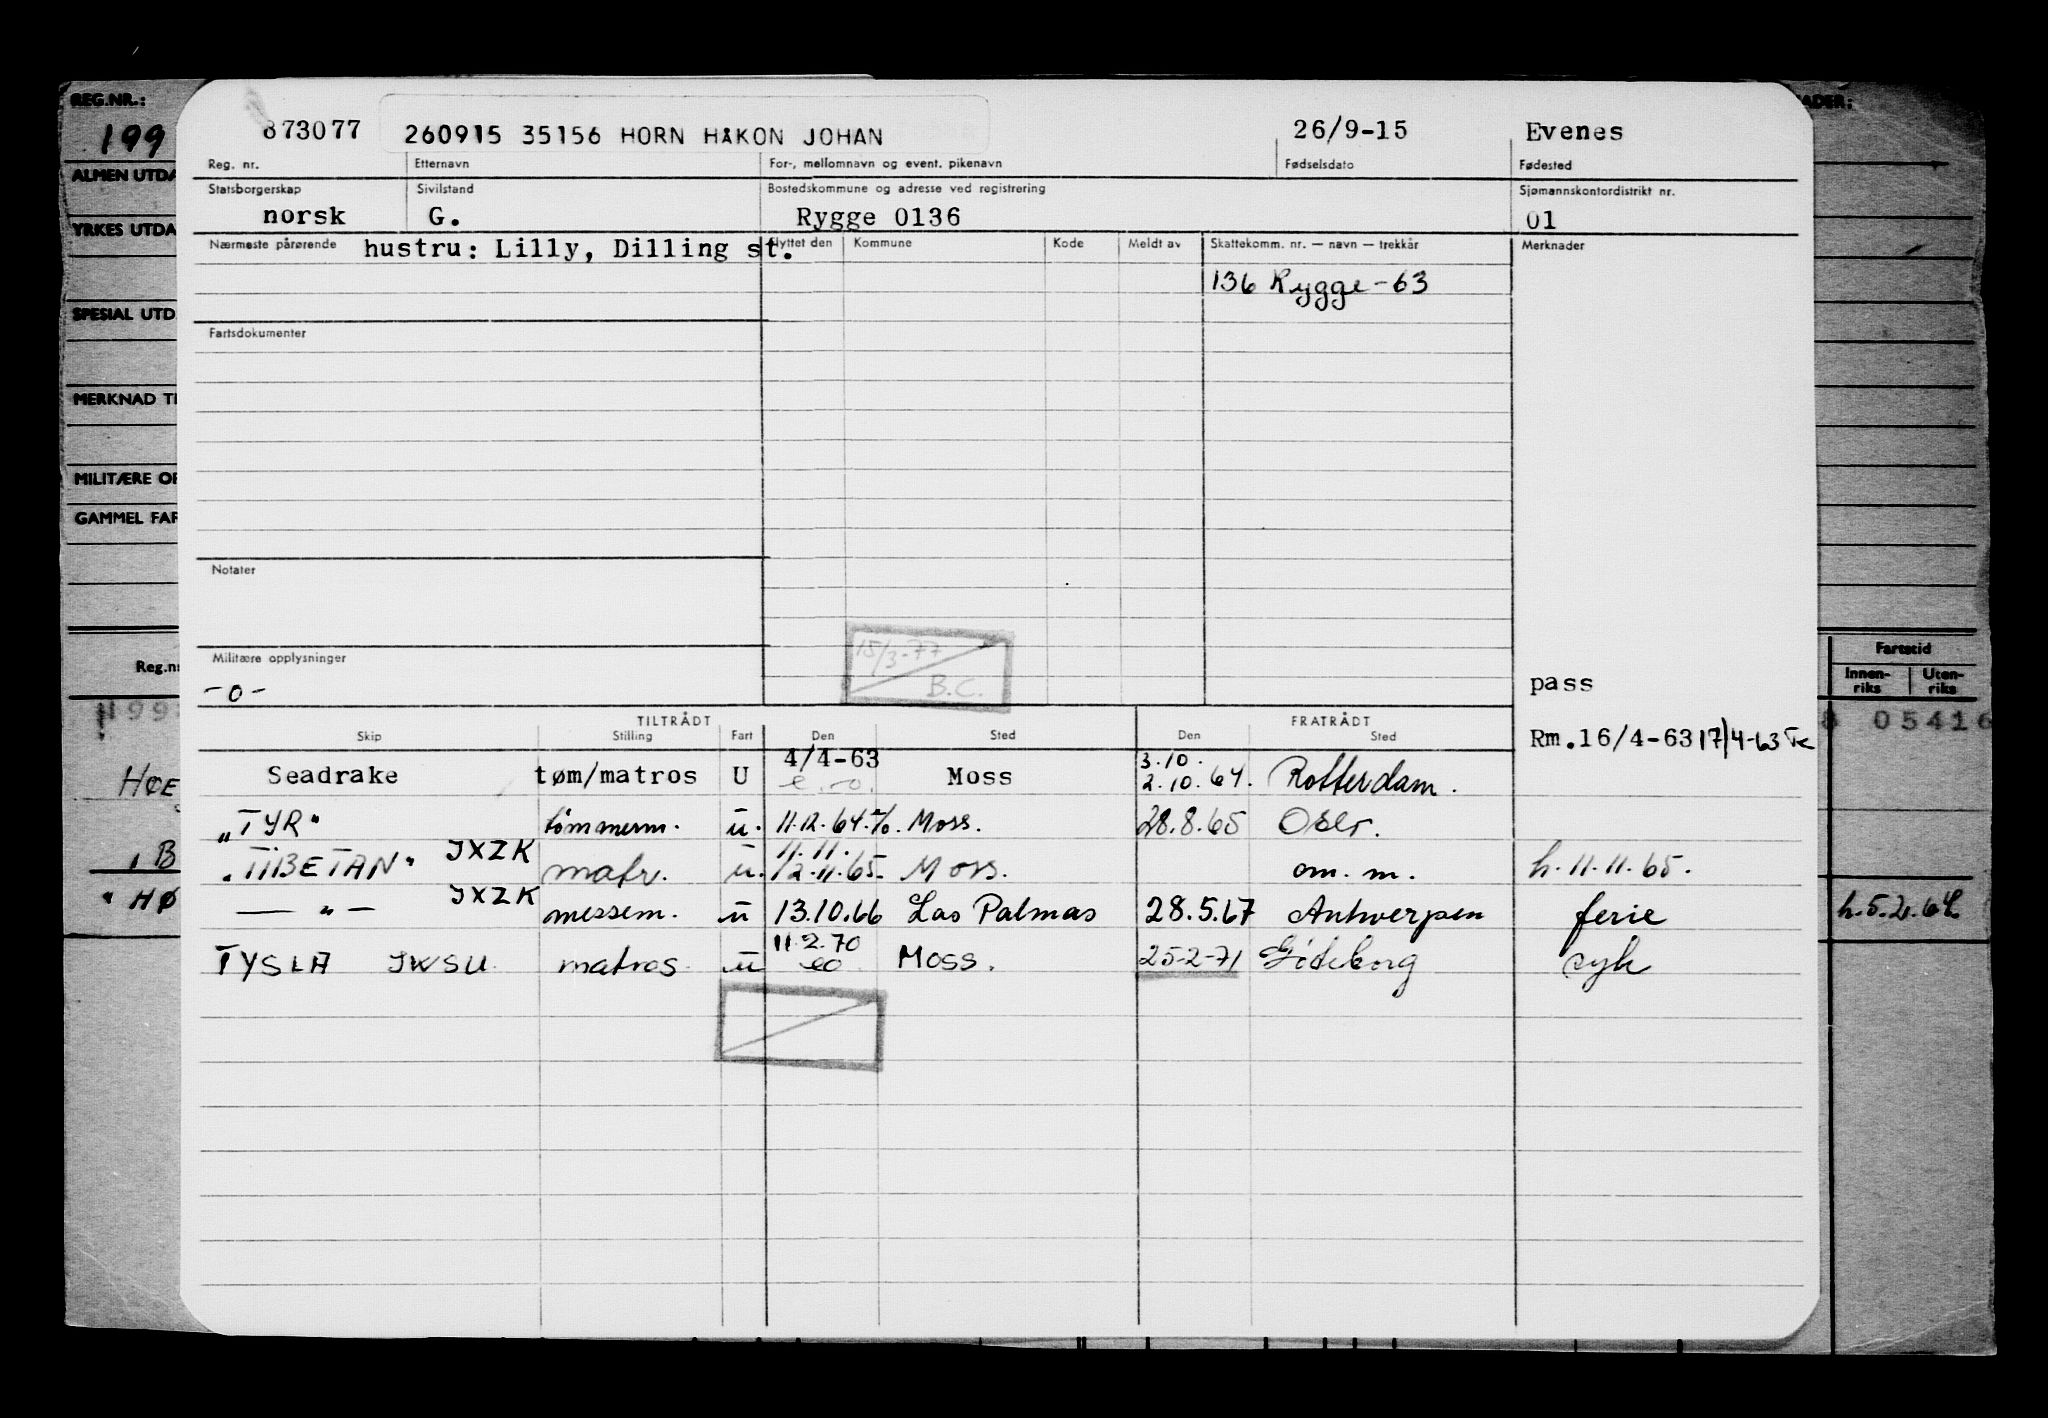 REG.NR.:
199
ALMEN UTDA
YRKES UTDA
SPESIAL UTD
MERKNAD TI
MILITÆRE OP
GAMMEL FAR
Reg.n
199
HØE
B
" HØ
873077 260915 35156 HORN HÅKON JOHAN 26/9-15 Evenes
Reg. nr. Etternavn For-, mellomnavn og event. pikenavn Fødselsdato Fødested
Statsborgerskap Sivilstand Bostedskommune og adresse ved registrering Sjømannskontordistrikt nr.
norsk G. Rygge 0136 01
Nærmeste pårørende hustru: Lilly, Dilling st. Flyttet den Kommune Kode Meldt av Skattekomm. nr. — navn — trekkår Merknader
136 Rygge-63
Fartsdokumenter
Notater
15/3-77
B.C.
Militære opplysninger
-0-
pass
TILTRÅDT FRATRÅDT
Skip Stilling Fart Den Sted Den Sted
Rm.16/4-63 17/4-63
4/4-63 3.10.
Seadrake tøm/matros U Moss 2.10.64. Rotterdam.
"TYR" tømmerm. u. 11.12.64. Moss. 28.8.65 Oslo.
JXZK 11.11.
"TIBETAN" matr. u. 12.11.65. Moss. om. m. h. 11.11.65.
JXZK
— " — messem. u 13.10.66 Las Palmas 28.5.67 Antwerpen ferie
11.2.70
TYSLA JWSU. matros. u eo Moss. 25-2-71 Göteborg syk
ADER:
Fartstid
Innen-riks Uten-riks
05416
h.5.2.64.